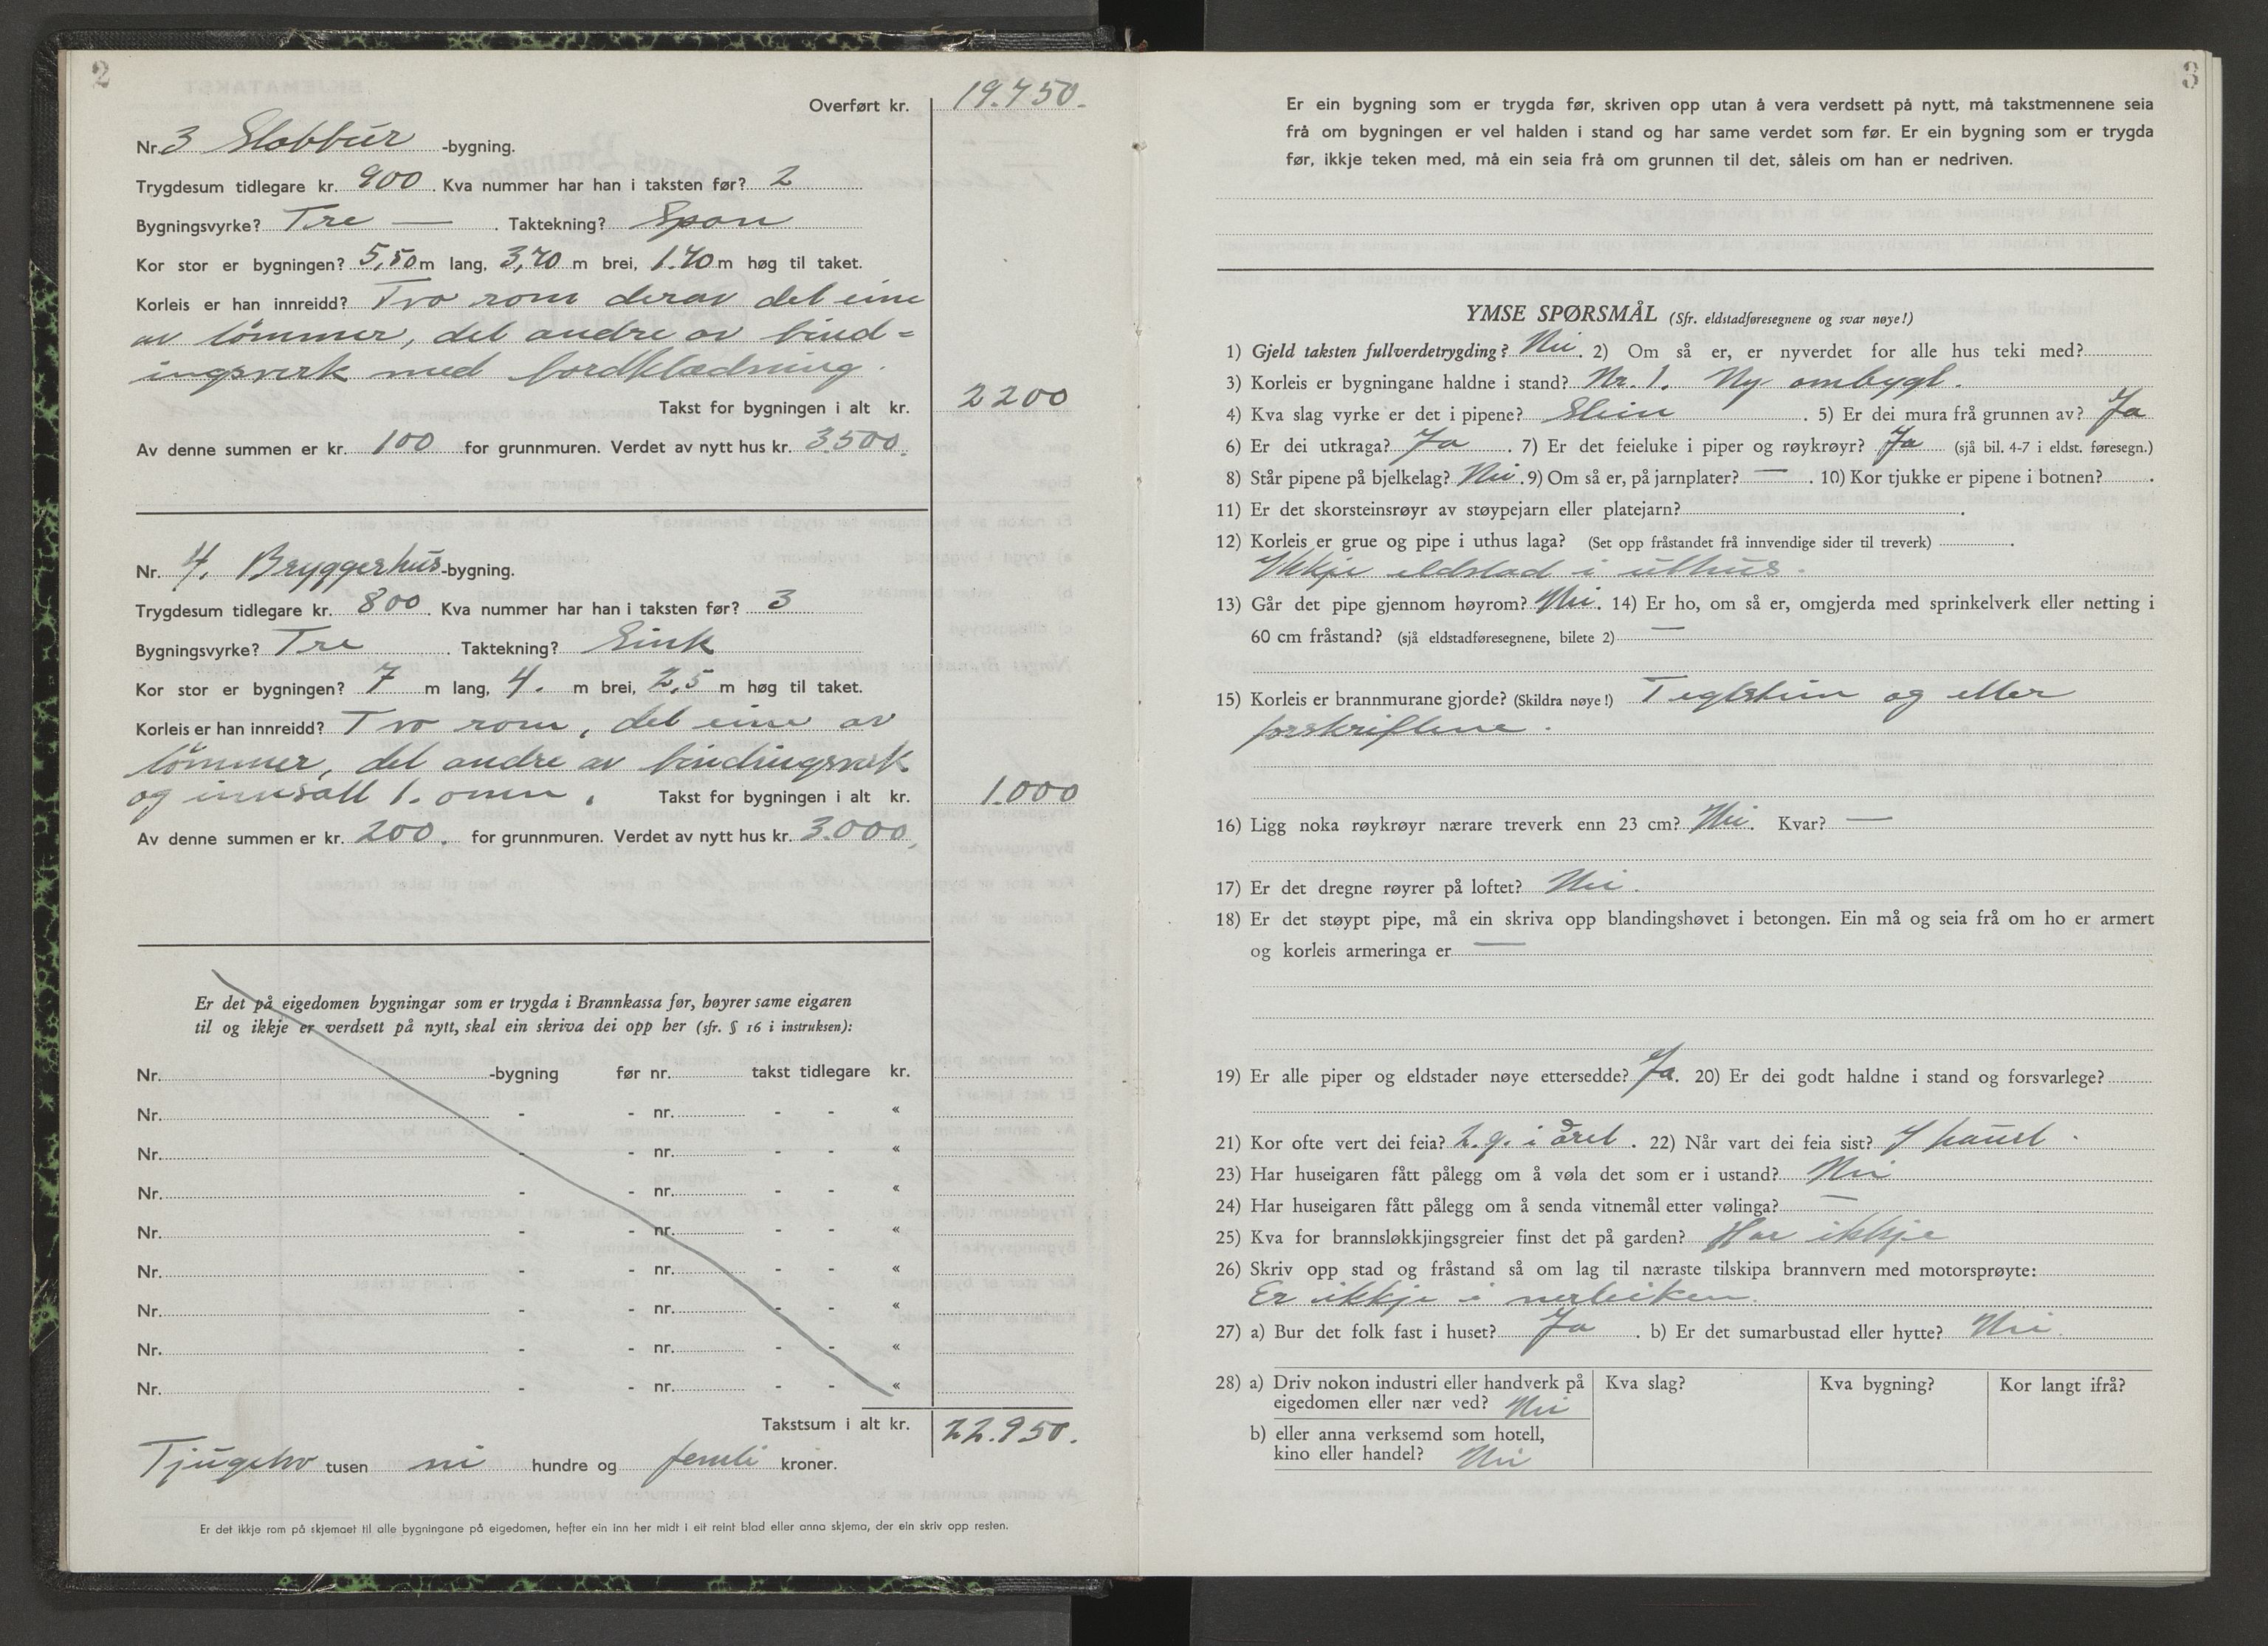 2
Overført kr. 19.750.
Nr. 3 Stabbur -bygning.
Trygdesum tidlegare kr. 900. Kva nummer har han i taksten før? 2
Bygningsvyrke? Tre — . Taktekning? Spon
Kor stor er bygningen? 5,50 m lang, 3,70 m brei, 1.70 m høg til taket.
Korleis er han innreidd? Tvo rom derav det eine
av tømmer, det andre av bind=
ingsverk med bordklædning.
Takst for bygningen i alt kr. 2200
Av denne summen er kr. 100 for grunnmuren. Verdet av nytt hus kr. 3.500.
Nr. 4. Bryggerhus -bygning.
Trygdesum tidlegare kr. 800. Kva nummer har han i taksten før? 3
Bygningsvyrke? Tre . Taktekning? Sink
Kor stor er bygningen? 7 m lang, 4. m brei, 2,5 m høg til taket.
Korleis er han innreidd? Tvo rom, det eine av
tømmer, det andre av bindingsverk
og innsatt 1. omn. Takst for bygningen i alt kr. 1.000
Av denne summen er kr. 200. for grunnmuren. Verdet av nytt hus kr. 3.000.
Er det på eigedomen bygningar som er trygda i Brannkassa før, høyrer same eigaren
til og ikkje er verdsett på nytt, skal ein skriva dei opp her (sfr. § 16 i instruksen):
Nr. -bygning før nr. takst tidlegare kr.
Nr. - - nr. - - «
Nr. - - nr. - - «
Nr. - - nr. - - «
Nr. - - nr. - - «
Nr. - - nr. - - «
Nr. - - nr. - - «
Nr. - - nr. - - «
Nr. - - nr. - - «
Takstsum i alt kr. 22.950.
Tjugetvo tusen ni hundre og femti kroner.
Er det ikkje rom på skjemaet til alle bygningane på eigedomen, hefter ein inn her midt i eit reint blad eller anna skjema, der ein skriv opp resten.
3
Er ein bygning som er trygda før, skriven opp utan å vera verdsett på nytt, må takstmennene seia
frå om bygningen er vel halden i stand og har same verdet som før. Er ein bygning som er trygda
før, ikkje teken med, må ein seia frå om grunnen til det, såleis om han er nedriven.
YMSE SPØRSMÅL (Sfr. eldstadføresegnene og svar nøye!)
1) Gjeld taksten fullverdetrygding? Nei. 2) Om så er, er nyverdet for alle hus teki med?
3) Korleis er bygningane haldne i stand? Nr. 1. Ny ombygt.
4) Kva slag vyrke er det i pipene? Stein . 5) Er dei mura frå grunnen av? Ja
6) Er dei utkraga? Ja . 7) Er det feieluke i piper og røykrøyr? Ja (sjå bil. 4-7 i eldst. føresegn.)
8) Står pipene på bjelkelag? Nei. 9) Om så er, på jarnplater? — . 10) Kor tjukke er pipene i botnen? .
11) Er det skorsteinsrøyr av støypejarn eller platejarn? .
12) Korleis er grue og pipe i uthus laga? (Set opp fråstandet frå innvendige sider til treverk) .
Ikkje eldstad i uthus.
13) Går det pipe gjennom høyrom? Nei. 14) Er ho, om så er, omgjerda med sprinkelverk eller netting i
60 cm fråstand? (sjå eldstadføresegnene, bilete 2) —
15) Korleis er brannmurane gjorde? (Skildra nøye!) Teglstein og etter
forskriftene.
16) Ligg noka røykrøyr nærare treverk enn 23 cm? Nei. Kvar? —
17) Er det dregne røyrer på loftet? Nei.
18) Er det støypt pipe, må ein skriva opp blandingshøvet i betongen. Ein må og seia frå om ho er armert
og korleis armeringa er —
19) Er alle piper og eldstader nøye ettersedde? Ja. 20) Er dei godt haldne i stand og forsvarlege?
21) Kor ofte vert dei feia? 2. g. i året. 22) Når vart dei feia sist? I haust.
23) Har huseigaren fått pålegg om å vøla det som er i ustand? Nei
24) Har huseigaren fått pålegg om å senda vitnemål etter vølinga? —
25) Kva for brannsløkkjingsgreier finst det på garden? Har ikkje
26) Skriv opp stad og fråstand så om lag til næraste tilskipa brannvern med motorsprøyte:
Er ikkje i nerleiken.
27) a) Bur det folk fast i huset? Ja . b) Er det sumarbustad eller hytte? Nei.
28) a) Driv nokon industri eller handverk på Kva slag? Kva bygning? Kor langt ifrå?
eigedomen eller nær ved? Nei
b) eller anna verksemd som hotell,
kino eller handel? Nei